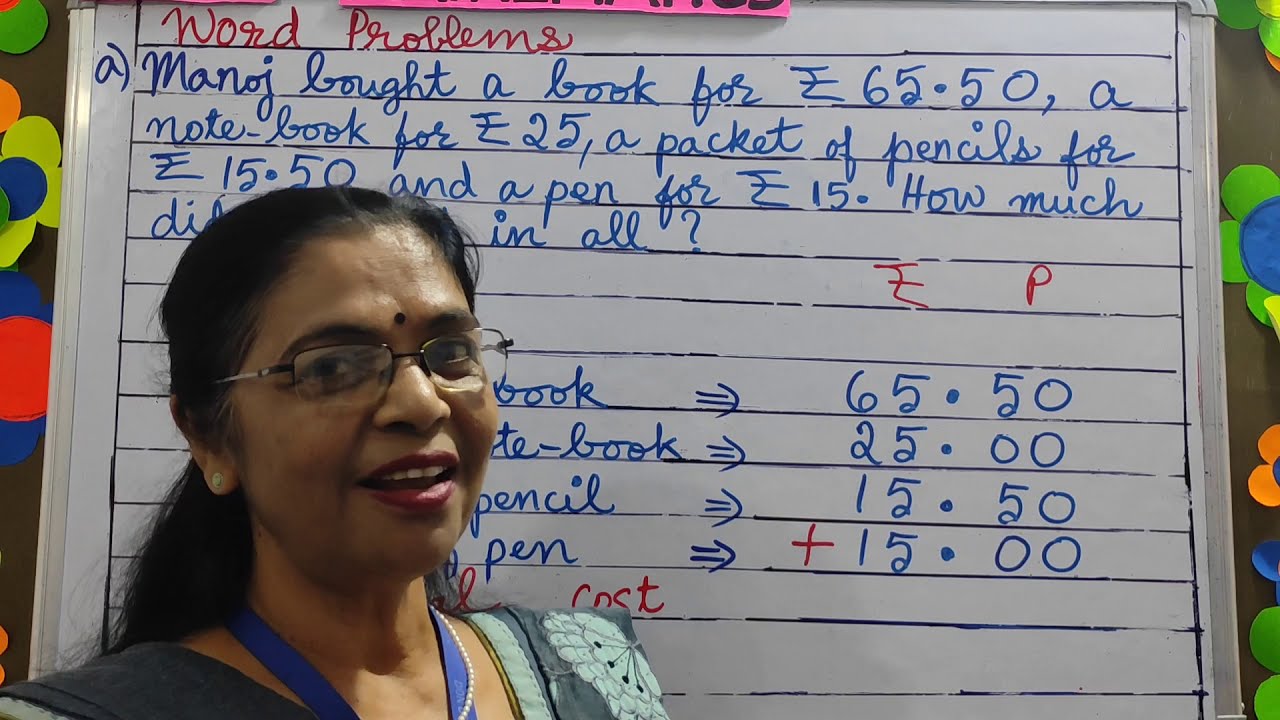 Word Problems
a) Manoj bought a book for ₹ 65.50, a
note-book for ₹ 25, a packet of pencils for
₹ 15.50 and a pen for ₹ 15. How much
in all ?
₹ P
book ⇒ 65.50
⇒ 25.00
pencil ⇒ 15.50
pen ⇒ + 15.00
cost